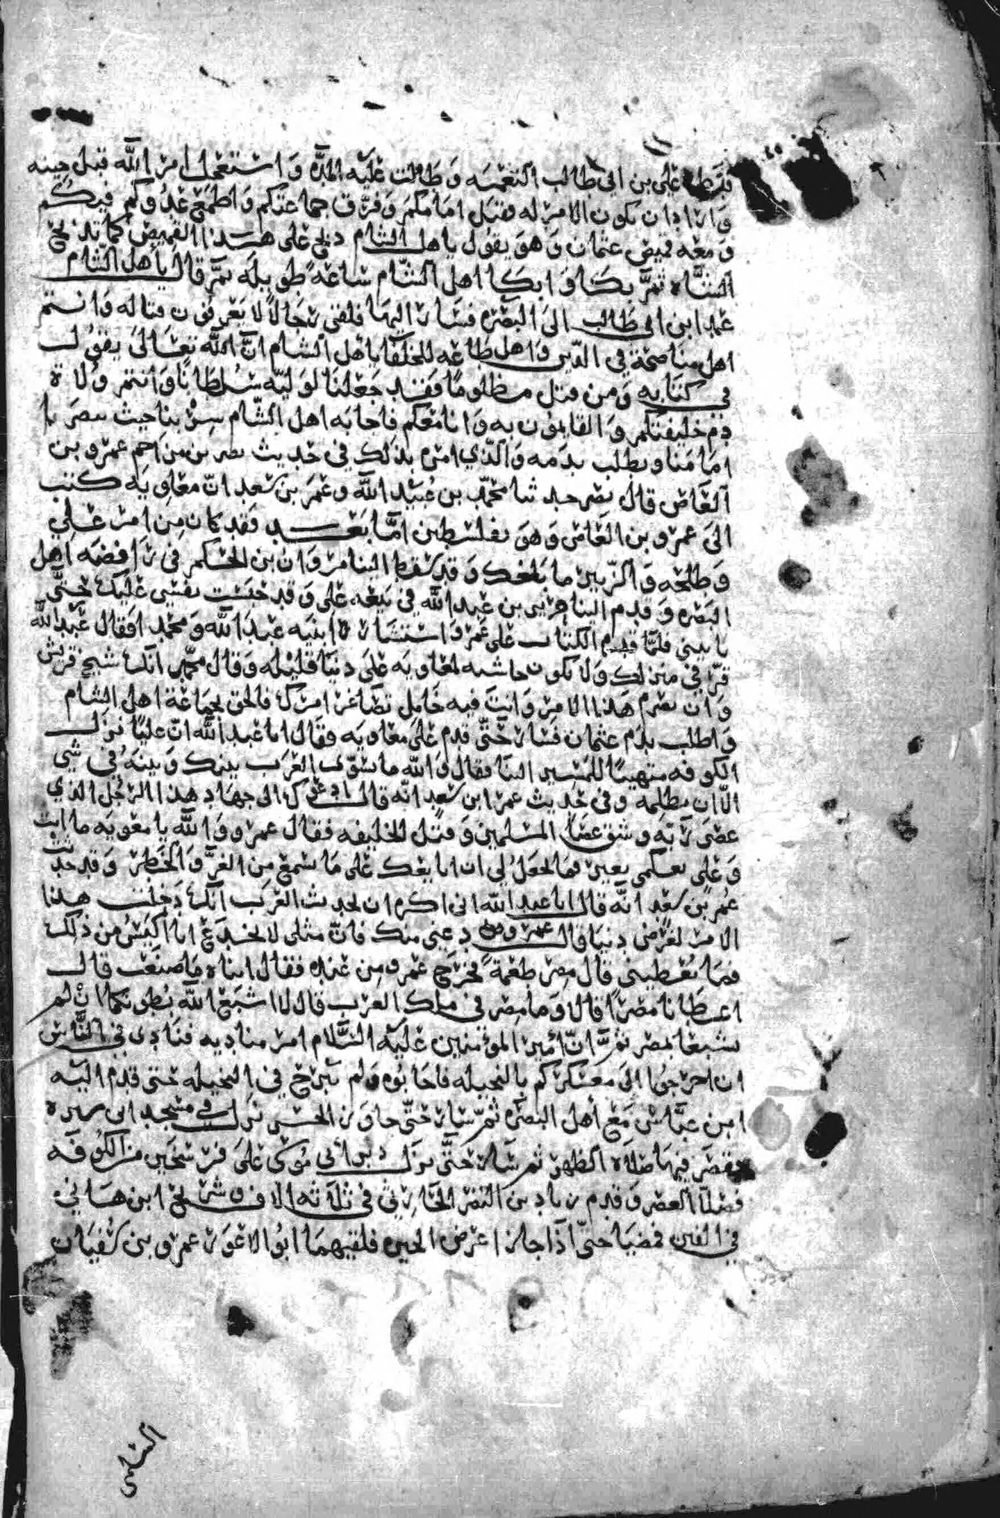 علي بن ابي طالب النعمه وطالت عليه المده واستعجل امر الله قبل حينه
واراد ان يكون الامر له فقتل امامكم وفرق جماعتكم واطمع عدوكم فيكم
ومعه قميص عثمان وهو يقول ياهل الشام ذبح على هذا القميص كما تذبح
الشاه ثم بكا وابكا اهل الشام ساعه طويله ثم قال ياهل الشام
عمد ابن ابي طالب الى البصره فسار اليها فلقى رجالا لا يعرفون قتاله وانتم
اهل مناصحة في الدين واهل طاعه للخلفا ياهل الشام ان الله تعالى يقول
في كتابه ومن قتل مظلوما فقد جعلنا لوليه سلطانا وانتم ولاة
دم خليفتكم والقايمون به وانا معكم فاجابه اهل الشام سر بنا حيث
امامنا ويطلب بدمه والذي امره بذلك في حديث نصر بن مزاحم عمرو بن
العاص قال نصر حدثنا محمد بن عبيد الله وعمر بن سعد ان معاويه كتب
الى عمرو بن العاص وهو بفلسطين اما بعد فقد كان من امر علي
وطلحه والزبير ما بلغك وقد سقط الينا مروان بن الحكم في رافضه اهل
البصره وقدم الينا جرير بن عبد الله في بيعه علي وقد حبست نفسي عليك حتى
ياتيني فلما قدم الكتاب على عمرو استشار ابنيه عبد الله ومحمدا فقال عبد الله
قر في منزلك ولا تكون حاشيه لمعاويه على دنيا قليله وقال محمد انك شيخ قريش
وان تصرم هذا الامر وانت فيه خامل تصاغر امرك فالحق بجماعة اهل الشام
واطلب بدم عثمان فسار حتى قدم على معاويه فقال ابا عبد الله ان عليا نزل
الكوفه متهيئا للمسير الينا فقال والله ما تسوي العرب بينك وبينه في شي
الا ان تظلمه وفي حديث عمر ابن سعد انه قال ادعوك الى جهاد هذا الرجل الذي
عصى ربه وشق عصا المسلمين وقتل الخليفه فقال عمرو والله يا معويه ما انت
وعلي بعكمي بعير فما تجعل لي ان ابايعك على ما تسمع من الغرر والخطر وقد حدث
عمر بن سعد انه قال ابا عبد الله اني اكره ان تحدث العرب انك دخلت هذا
الامر لغرض دنيا قال عمرو دعني منك فان مثلي لا يخدع انا اكيس من ذلك
فما تعطيني قال مصر طعمة فخرج عمرو من عنده فقال ابناه ما صنعت قال
اعطانا مصرا قالا وما مصر في ملك العرب قال لا اشبع الله بطونكما ان لم
تشبعا بمصر ثم ان امير المؤمنين عليه السلام امر مناديه فنادى في الناس
ان اخرجوا الى معسكركم بالنخيله فاجابوه ولم يبرح في النخيله حتى قدم اليه
ابن عباس مع اهل البصره ثم سار حتى جاوز الجسر نزل في مسجد ابي سبره
فقصر فيها صلاة الظهر ثم سار حتى نزل دير ابي موسى على فرسخين من الكوفه
فصلا العصر وقدم زياد بن النضر الحارثي في ثلاثه الاف وشريح ابن هاني
في الفين فمضيا حتى اذا جازا عرض الجزيره فلقيهما ابو الاعور عمرو بن سفيان
السلمي